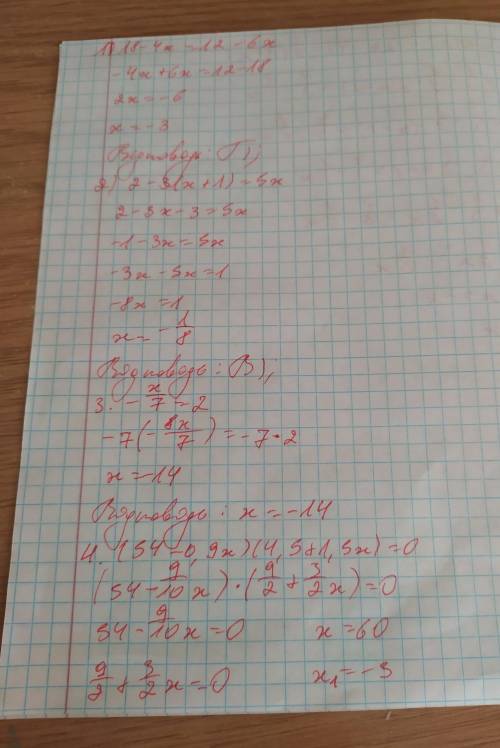 1) 18-4x=12-6x
-4x+6x=12-18
2x=-6
x=-3
Відповідь: Г);
2) 2-3(x+1)=5x
2-3x-3=5x
-1-3x=5x
-3x-5x=1
-8x=1
x=-1/8
Відповідь: В);
3. -x/7=2
-7(-x/7)=-7·2
x=-14
Відповідь: x=-14
4. (54-0,9x)(4,5+1,5x)=0
(54-9/10x)·(9/2+3/2x)=0
54-9/10x=0 x=60
9/2+3/2x=0 x₁=-3